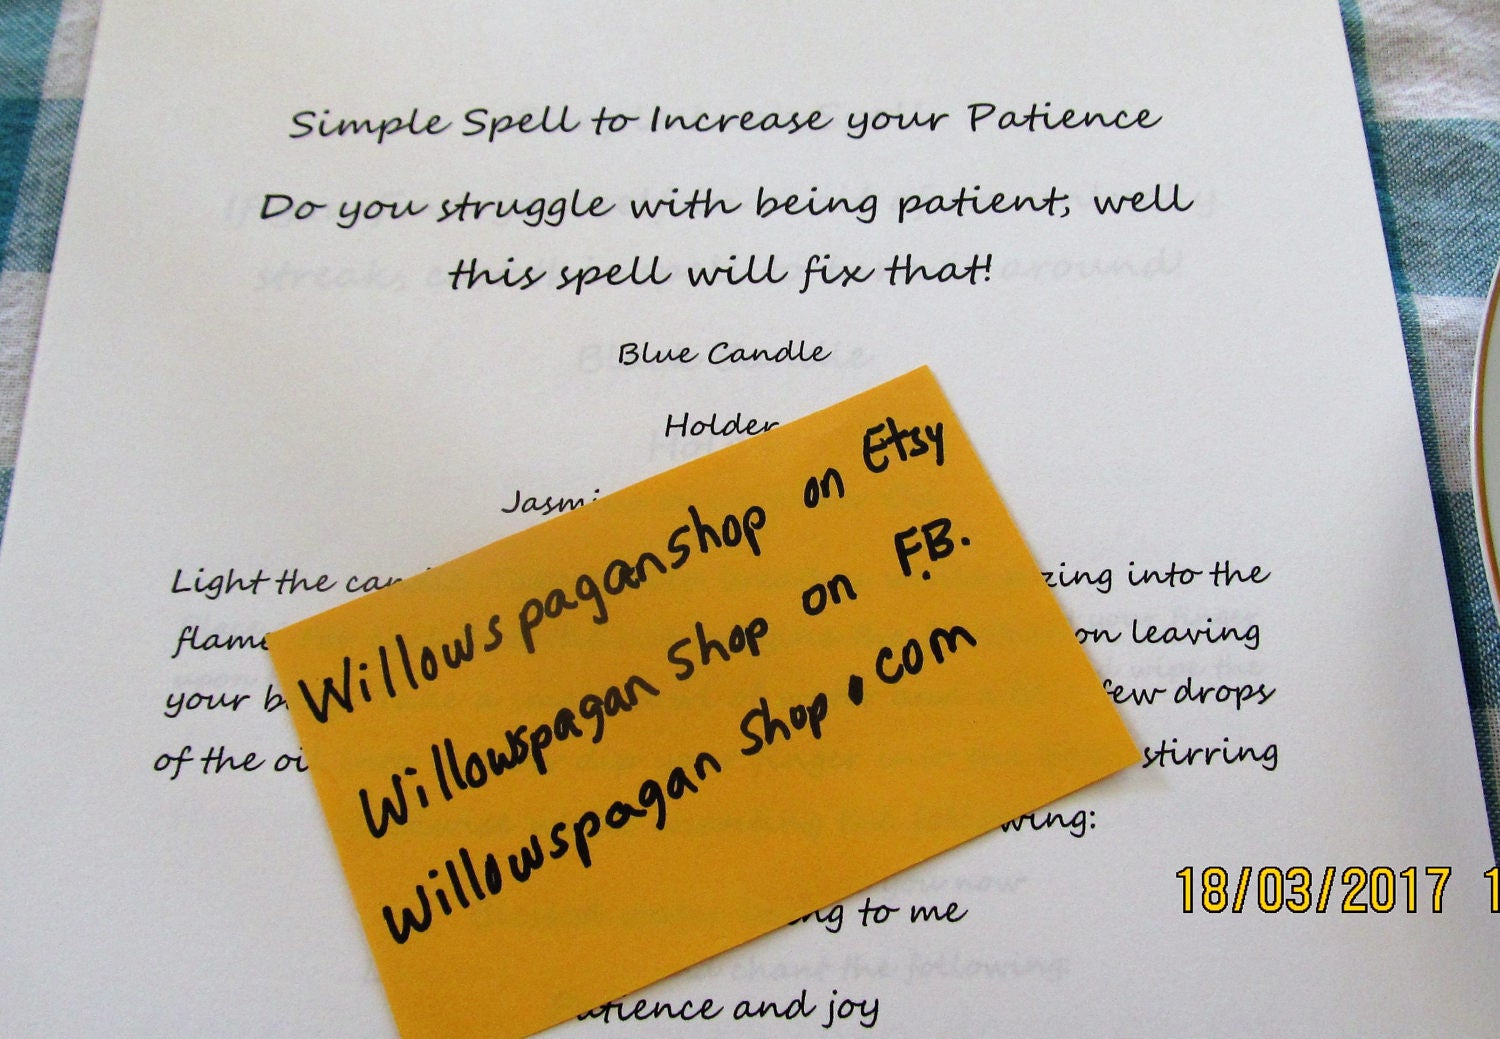 Simple Spell to Increase your Patience
Do you struggle with being patient, well
this spell will fix that!
Blue Candle
Holder
Jasmi
Light the can zing into the
flame on leaving
your b few drops
of the oi stirring
wing:
ng to me
atience and joy
Willowspaganshop on Etsy
Willowspagan Shop on F.B.
Willowspagan Shop.com
18/03/2017 1